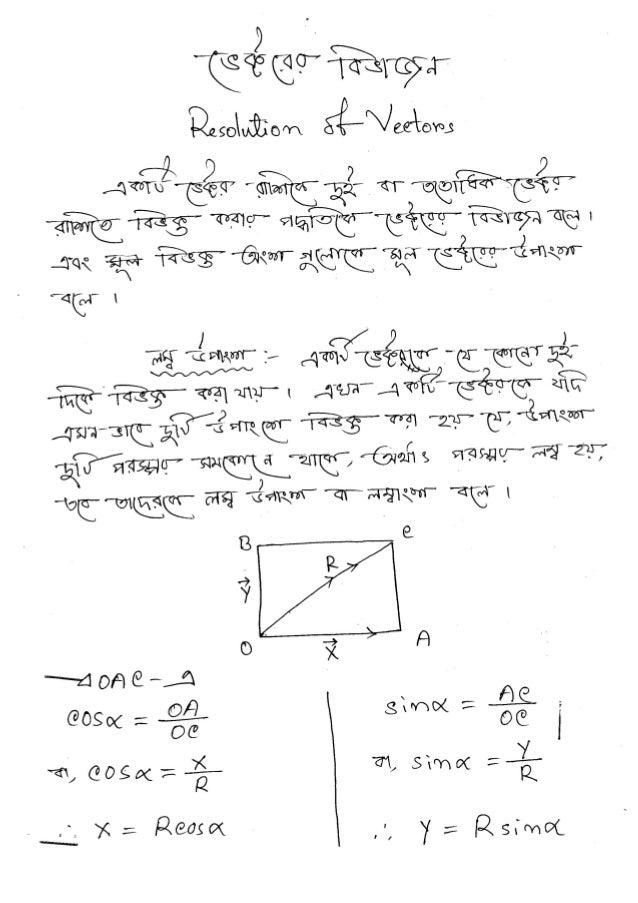 ভেক্টরের বিভাজন
Resolution of Vectors
একটি ভেক্টর রাশিকে দুই বা ততোধিক ভেক্টর
রাশিতে বিভক্ত করার পদ্ধতিকে ভেক্টরের বিভাজন বলে।
এবং বিভক্ত অংশ গুলোকে মূল ভেক্টরের উপাংশ
বলে।
লম্ব উপাংশ :- একটি ভেক্টরকে যে কোনো দুই
দিকে বিভক্ত করা যায়। এখন একটি ভেক্টরকে যদি
এমন ভাবে দুটি উপাংশে বিভক্ত করা হয় যে, উপাংশ
দুটি পরস্পর সমকোনে থাকে, অর্থাৎ পরস্পর লম্ব হয়,
তবে তাদেরকে লম্ব উপাংশ বা লম্বাংশ বলে।
B C
R
Y⃗
O X⃗ A
△OAC-এ
cosα = OA/OC
বা, cosα = X/R
∴ X = Rcosα
sinα = AC/OC
বা, sinα = Y/R
∴ Y = Rsinα